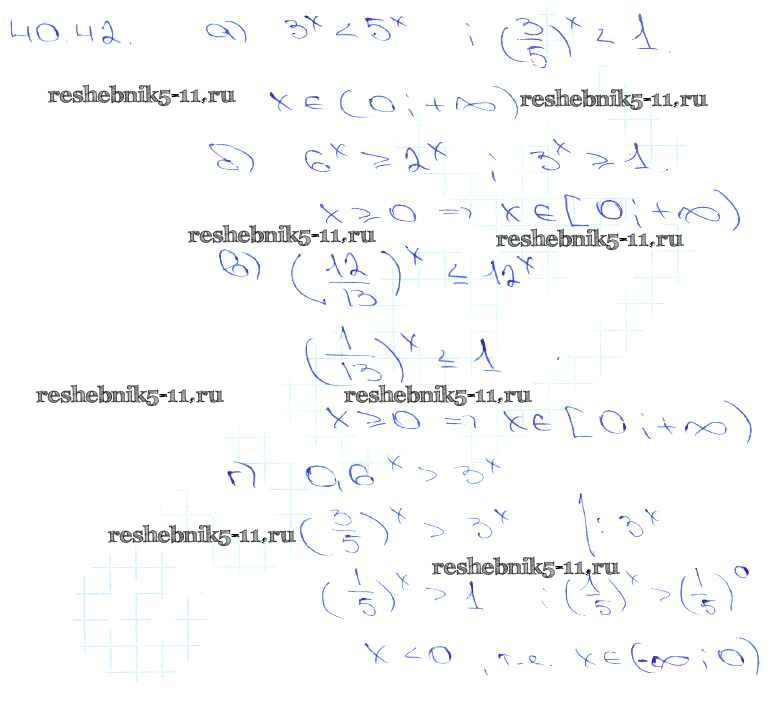 40.42. а) 3^x < 5^x ; (3/5)^x < 1.
reshebnik5-11.ru x ∈ (0; +∞) reshebnik5-11.ru
б) 6^x ≥ 2^x ; 3^x ≥ 1.
x ≥ 0 => x ∈ [0; +∞)
reshebnik5-11.ru reshebnik5-11.ru
в) (12/13)^x ≤ 12^x
(1/13)^x ≤ 1
reshebnik5-11.ru reshebnik5-11.ru
x ≥ 0 => x ∈ [0; +∞)
г) 0,6^x > 3^x
reshebnik5-11.ru (3/5)^x > 3^x | : 3^x
reshebnik5-11.ru
(1/5)^x > 1 ; (1/5)^x > (1/5)^0
x < 0, т.е. x ∈ (-∞; 0)